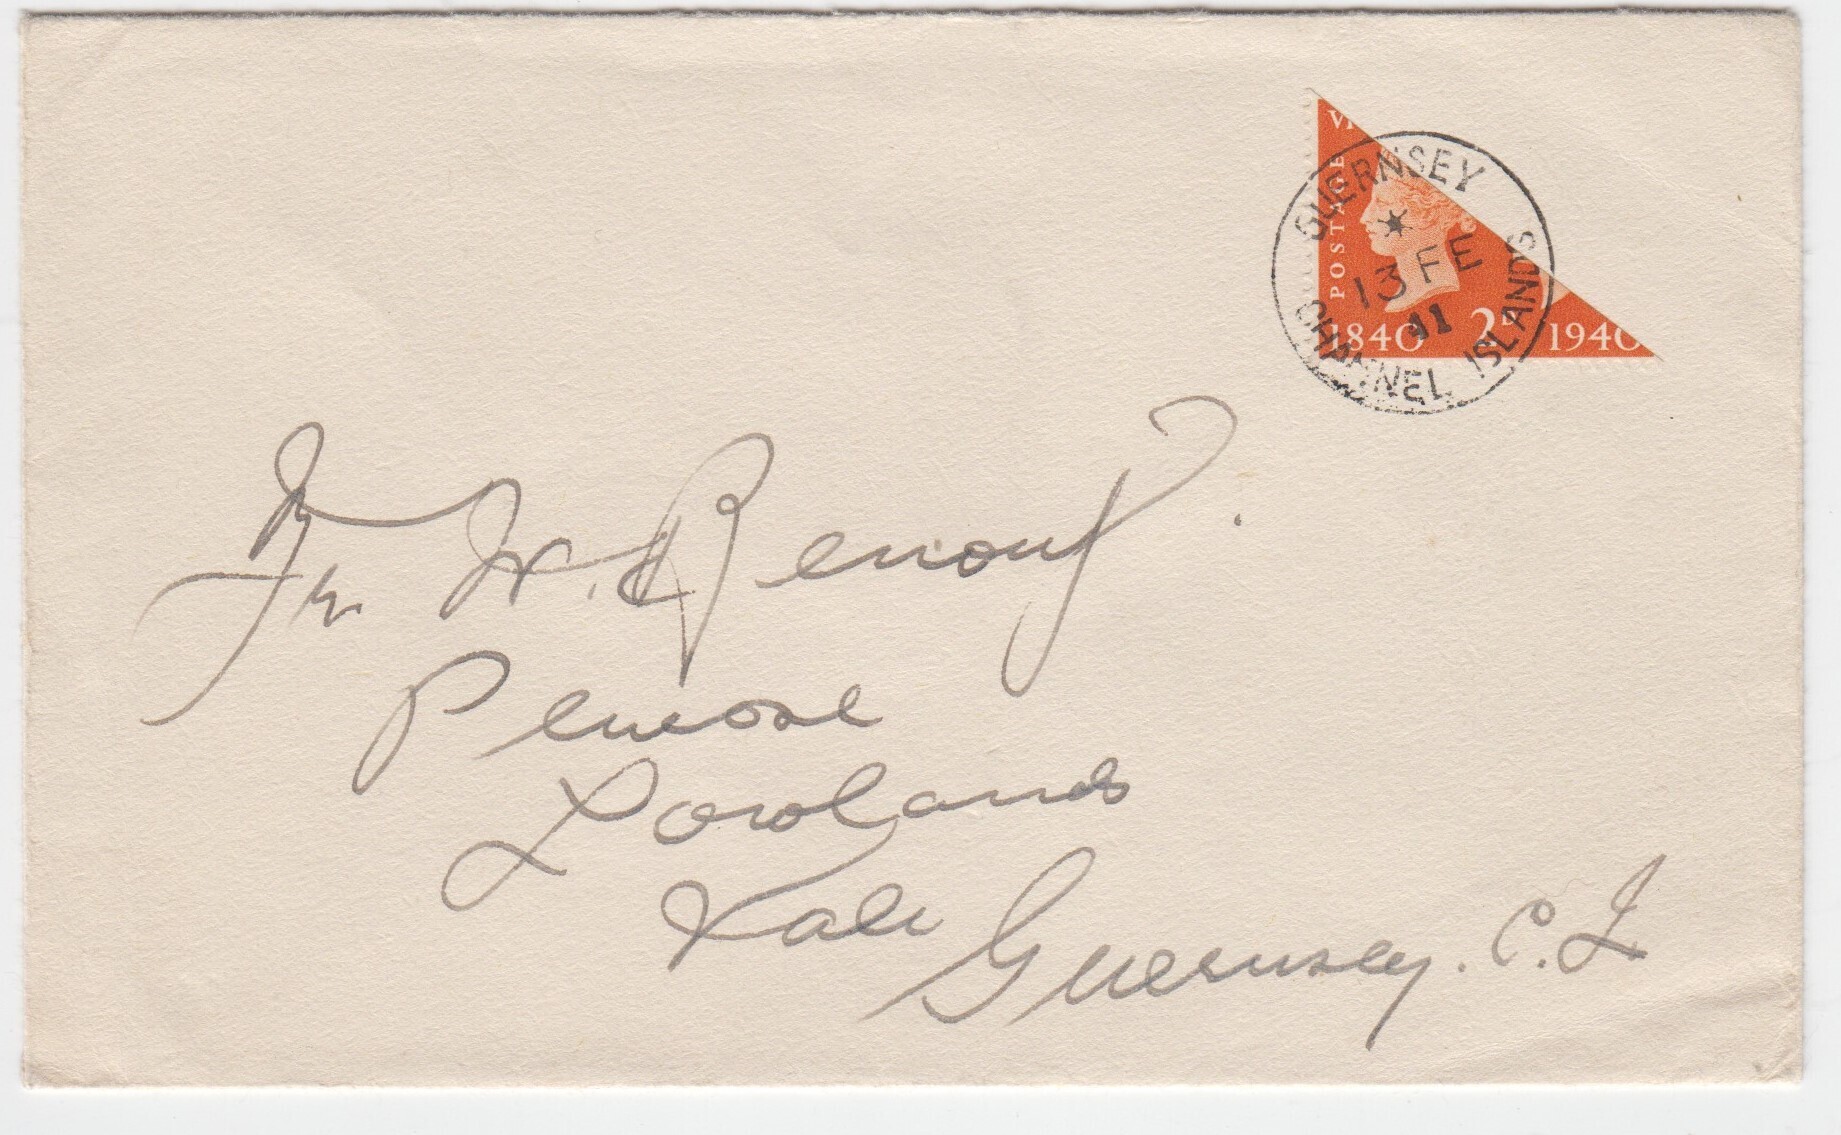 VI
POSTAGE
1840 2D 1940
GUERNSEY
13 FE
41
CHANNEL ISLANDS
W. Renouf.
Penrose
Lowlands
Vale
Guernsey. C.I